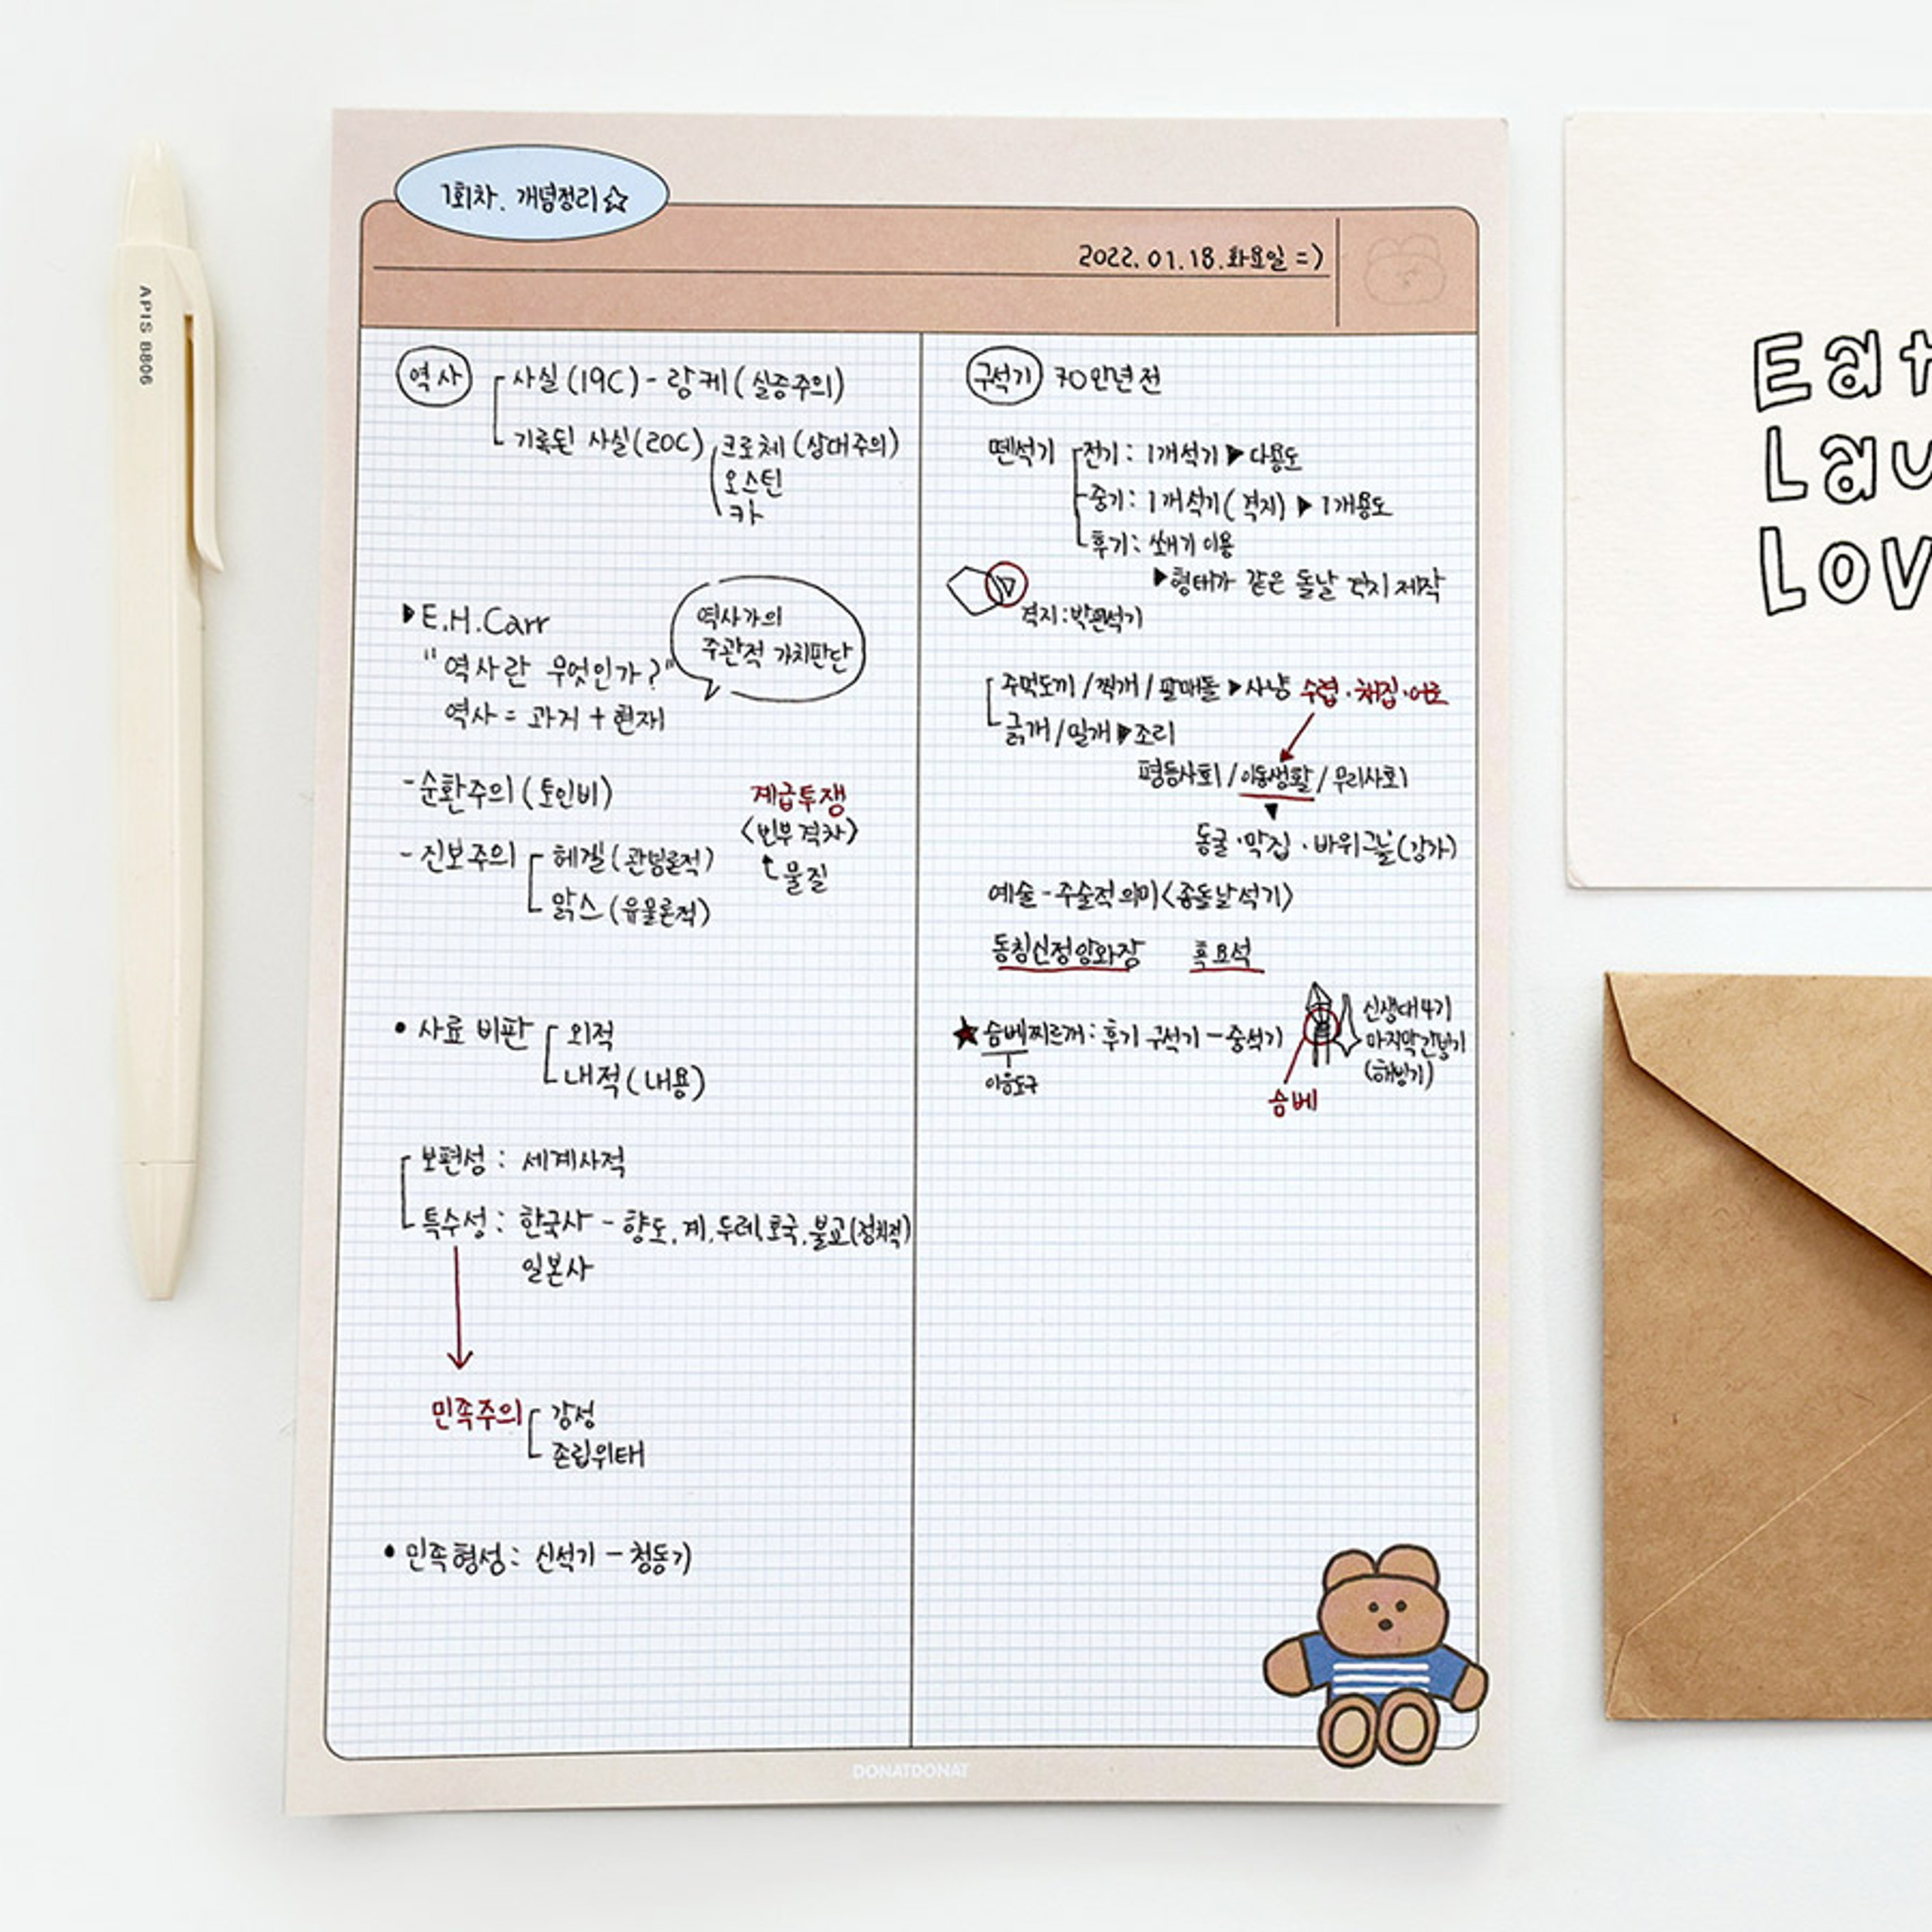 APIS 8806
1회차. 개념정리☆
2022. 01. 18. 화요일 =)
역사
사실 (19C) - 랑케 (실증주의)
기록된 사실 (20C) 크로체 (상대주의)
오스틴
카
▶ E.H.Carr
"역사란 무엇인가?"
역사 = 과거 + 현재
역사가의
주관적 가치판단
- 순환주의 (토인비)
- 진보주의 헤겔 (관념론적)
맑스 (유물론적)
계급투쟁
<빈부격차>
물질
• 사료 비판 외적
내적 (내용)
보편성 : 세계사적
특수성 : 한국사 - 향도, 계, 두레, 호국, 불교 (정치적)
일본사
민족주의 강성
존립위태
• 민족형성 : 신석기 - 청동기
구석기 70만년 전
뗀석기 전기 : 1개석기 ▶ 다용도
중기 : 1개석기 (격지) ▶ 1개용도
후기 : 쐐기 이용
▶ 형태가 같은 돌날 격지 제작
격지 : 박편석기
주먹도끼 / 찍개 / 팔매돌 ▶ 사냥 수렵·채집·어로
긁개 / 밀개 ▶ 조리
평등사회 / 이동생활 / 무리사회
▼
동굴·막집·바위그늘 (강가)
예술 - 주술적 의미 <좀돌날석기>
흑요석
★ 슴베찌르개 : 후기 구석기 - 중석기
이음도구
슴베
신생대 4기
마지막 간빙기
(해빙기)
DONATDONAT
Eat
Lau
Lov